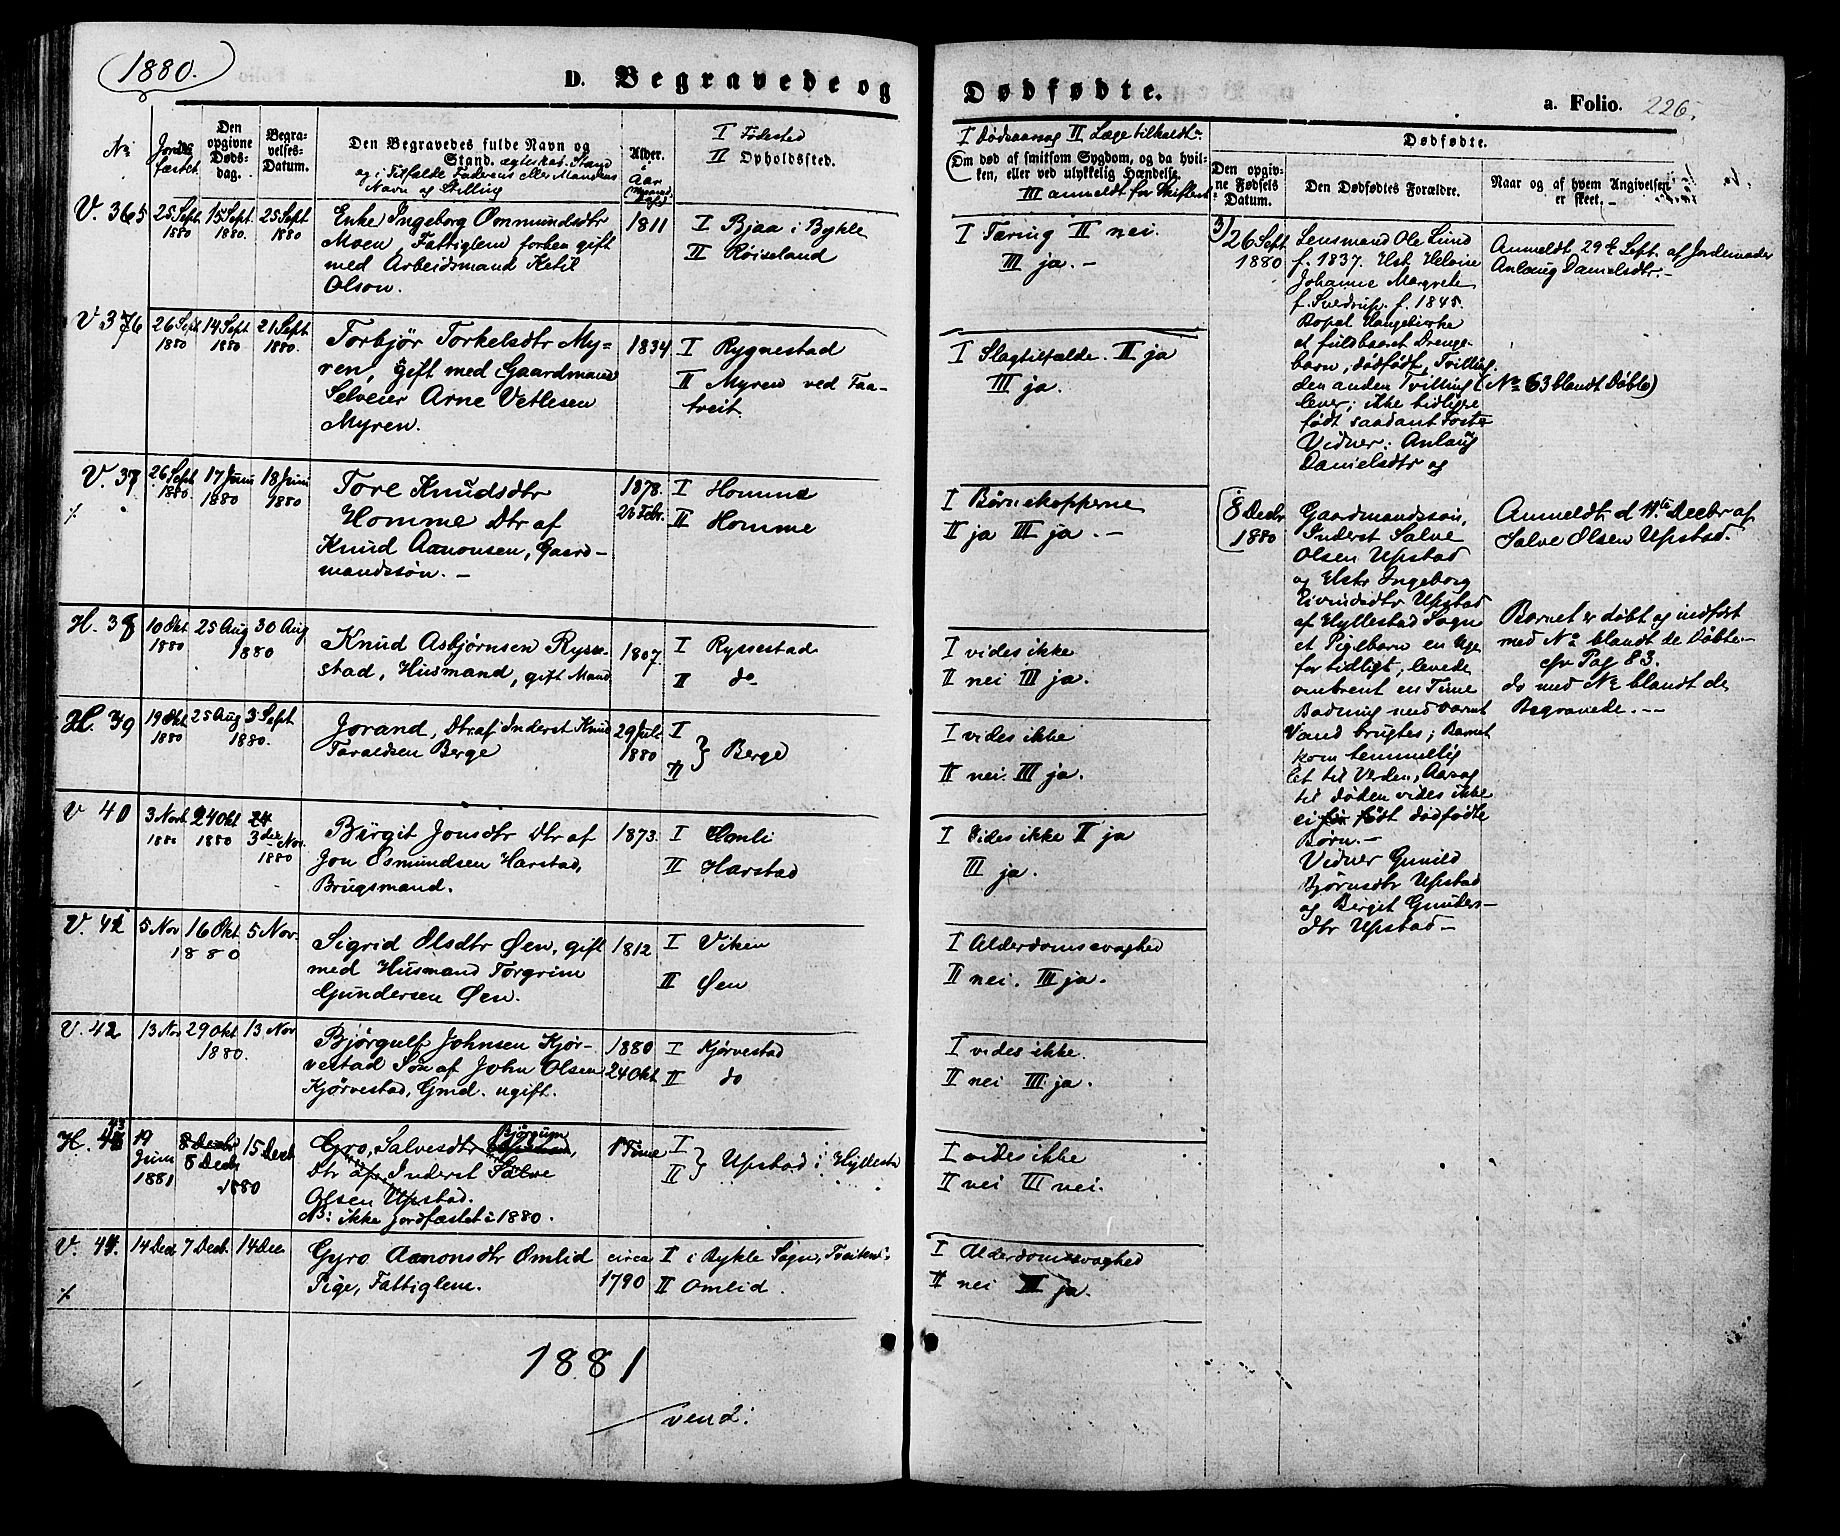 1880.
D. Begravede og
No
Jordfæstet
Den opgivne Døds-dag.
Begra-velses-Datum.
Den Begravedes fulde Navn og
Stand. ægteskab. Stand
og i Tilfælde Faderens eller Mandens
Navn og Stilling
Alder.
Aar
I Fødested
II Opholdssted.
V. 365
25 Sept. 1880
15 Sept. 1880.
25 Sept 1880
Enke Ingeborg Onmundsdtr
Moen, Fattiglem forhen gift
med Arbeidsmand Ketil
Olson.
1811
I Bjaa i Bykle
II Røiseland
V 376
26 Sept 1880
14 Sept 1880
21 Sept 1880.
Torbjør Torkelsdtr My=
ren, gift med Gaardmand
Selveier Arne Vetlesen
Myren.
1834
I Rygnestad
II Myren ved Faa-
tveit.
V. 37
26 Sept 1880
17 Juni 1880
18 Juni 1880
Tore Knudsdtr
Homme Dtr af
Knud Aanonsen, Gaard-
mandssøn. -
1878.
26 Febr.
I Homme
II Homme
H. 38
10 Okt 1880
25 Aug
30 Aug
1880
Knud Asbjørnsen Rysse-
stad, Husmand, gift Mand
1807.
I Ryssestad
II do
H. 39
19 Okt 1880
25 Aug
3 Sept
1880.
Jorand, Dtr. af Inderst Knud
Taraldsen Berge
29 Juli
1880
I
II } Berge
V 40
3 Novb 1880
24 Okt 1880
24
3die Nov. 1880
Birgit Jonsdtr Dtr af
Jon Osmundsen Harstad,
Brugsmand.
1873.
I Omli
II Harstad
V. 41
5 Nov
16 Okt
5 Nov.
1880
Sigrid Olsdtr Øen, gift
med Husmand Torgrim
Gundersen Øen.
1812
I Viken
II Øen
V. 42
13 Nov
29 Okt
13 Nov
1880.
Bjørgulf Johnsen Kjør-
vestad Søn af John Olsen
Kjørvestad, Gmd. ugift.
1880
24 Okt
I Kjørvestad
II do
H. 43
19 Juni 1881
8 Decbr
8 Decb
15 Decb
1880
Gyro, Salvesdtr
Dtr af Inderst Salve
Olsen Upstad.
NB: ikke jordfæstet i 1880.
1 Time
I
II } Upstad i Hyllestad
V. 44.
14 Dec
7 Decb.
14 Dec
Gyro Aanonsdtr Omlid
Pige, Fattiglem.
circa
1790
I i Bykle Sogn,
II Omlid.
1881
vend:
Dødfødte.
a. Folio. 226.
I Dødsaarsag II Læge tilkaldt
(Om død af smitsom Sygdom, og da hvil-
ken, eller ved ulykkelig Hændelse.
III anmeldt for Skifteret
I Tæring II nei.
III ja. -
I Slagtilfælde. II ja
III ja.
I Børnekopperne
II ja III ja. -
I vides ikke
II nei III ja.
I vides ikke
II nei. III ja.
I vides ikke II ja
III ja.
I Alderdomssvaghed
II nei. III ja.
I vides ikke.
II nei III ja.
I vides ikke
II nei III nei.
I Alderdomssvaghed
II nei III ja.
Dødfødte.
Den opgiv-
ne Fødsels
Datum.
Den Dødfødtes Forældre.
Naar og af hvem Angivelsen
er skeet. -
3/
26 Sept.
1880
Lensmand Ole Lund
f. 1837. Hst. Helvine
Johanne Margrete
f. Sverdrup. f. 1845.
Bopæl Haugekirke
et fuldbaaret Drenge-
barn, dødfødt, Tvilling.
den anden Tvilling
lever; ikke tidligere
født saadant Foster
Vidner: Anlaug
Danielsdtr og
Anmeldt 29de Sept. af Jordemoder
Anlaug Danielsdtr. -
(No 63 blandt Døbte)
8 Decbr
1880
Gaardmandssøn,
Inderst Salve
Olsen Upstad
og Hstr Ingeborg
Eivindsdtr Upstad
af Hyllestad Sogn
et Pigebarn en Uge
for tidligt, levede
ombrent en Time
Badning med varmt
Vand brugtes; Barnet
kom temmelig
let til Verden, Aarsag
til døden vides ikke
ei før født dødfødte
Børn. -
Vidner Gunild
Bjørnsdtr Upstad
og Birgit Gunders-
dtr Upstad -
Anmeldt d. 11te Decbr af
Salve Olsen Upstad.
Barnet er døbt og indført
med No blandt de Døbte -
cfr Pag 83.
do med No blandt de
Begravede. --